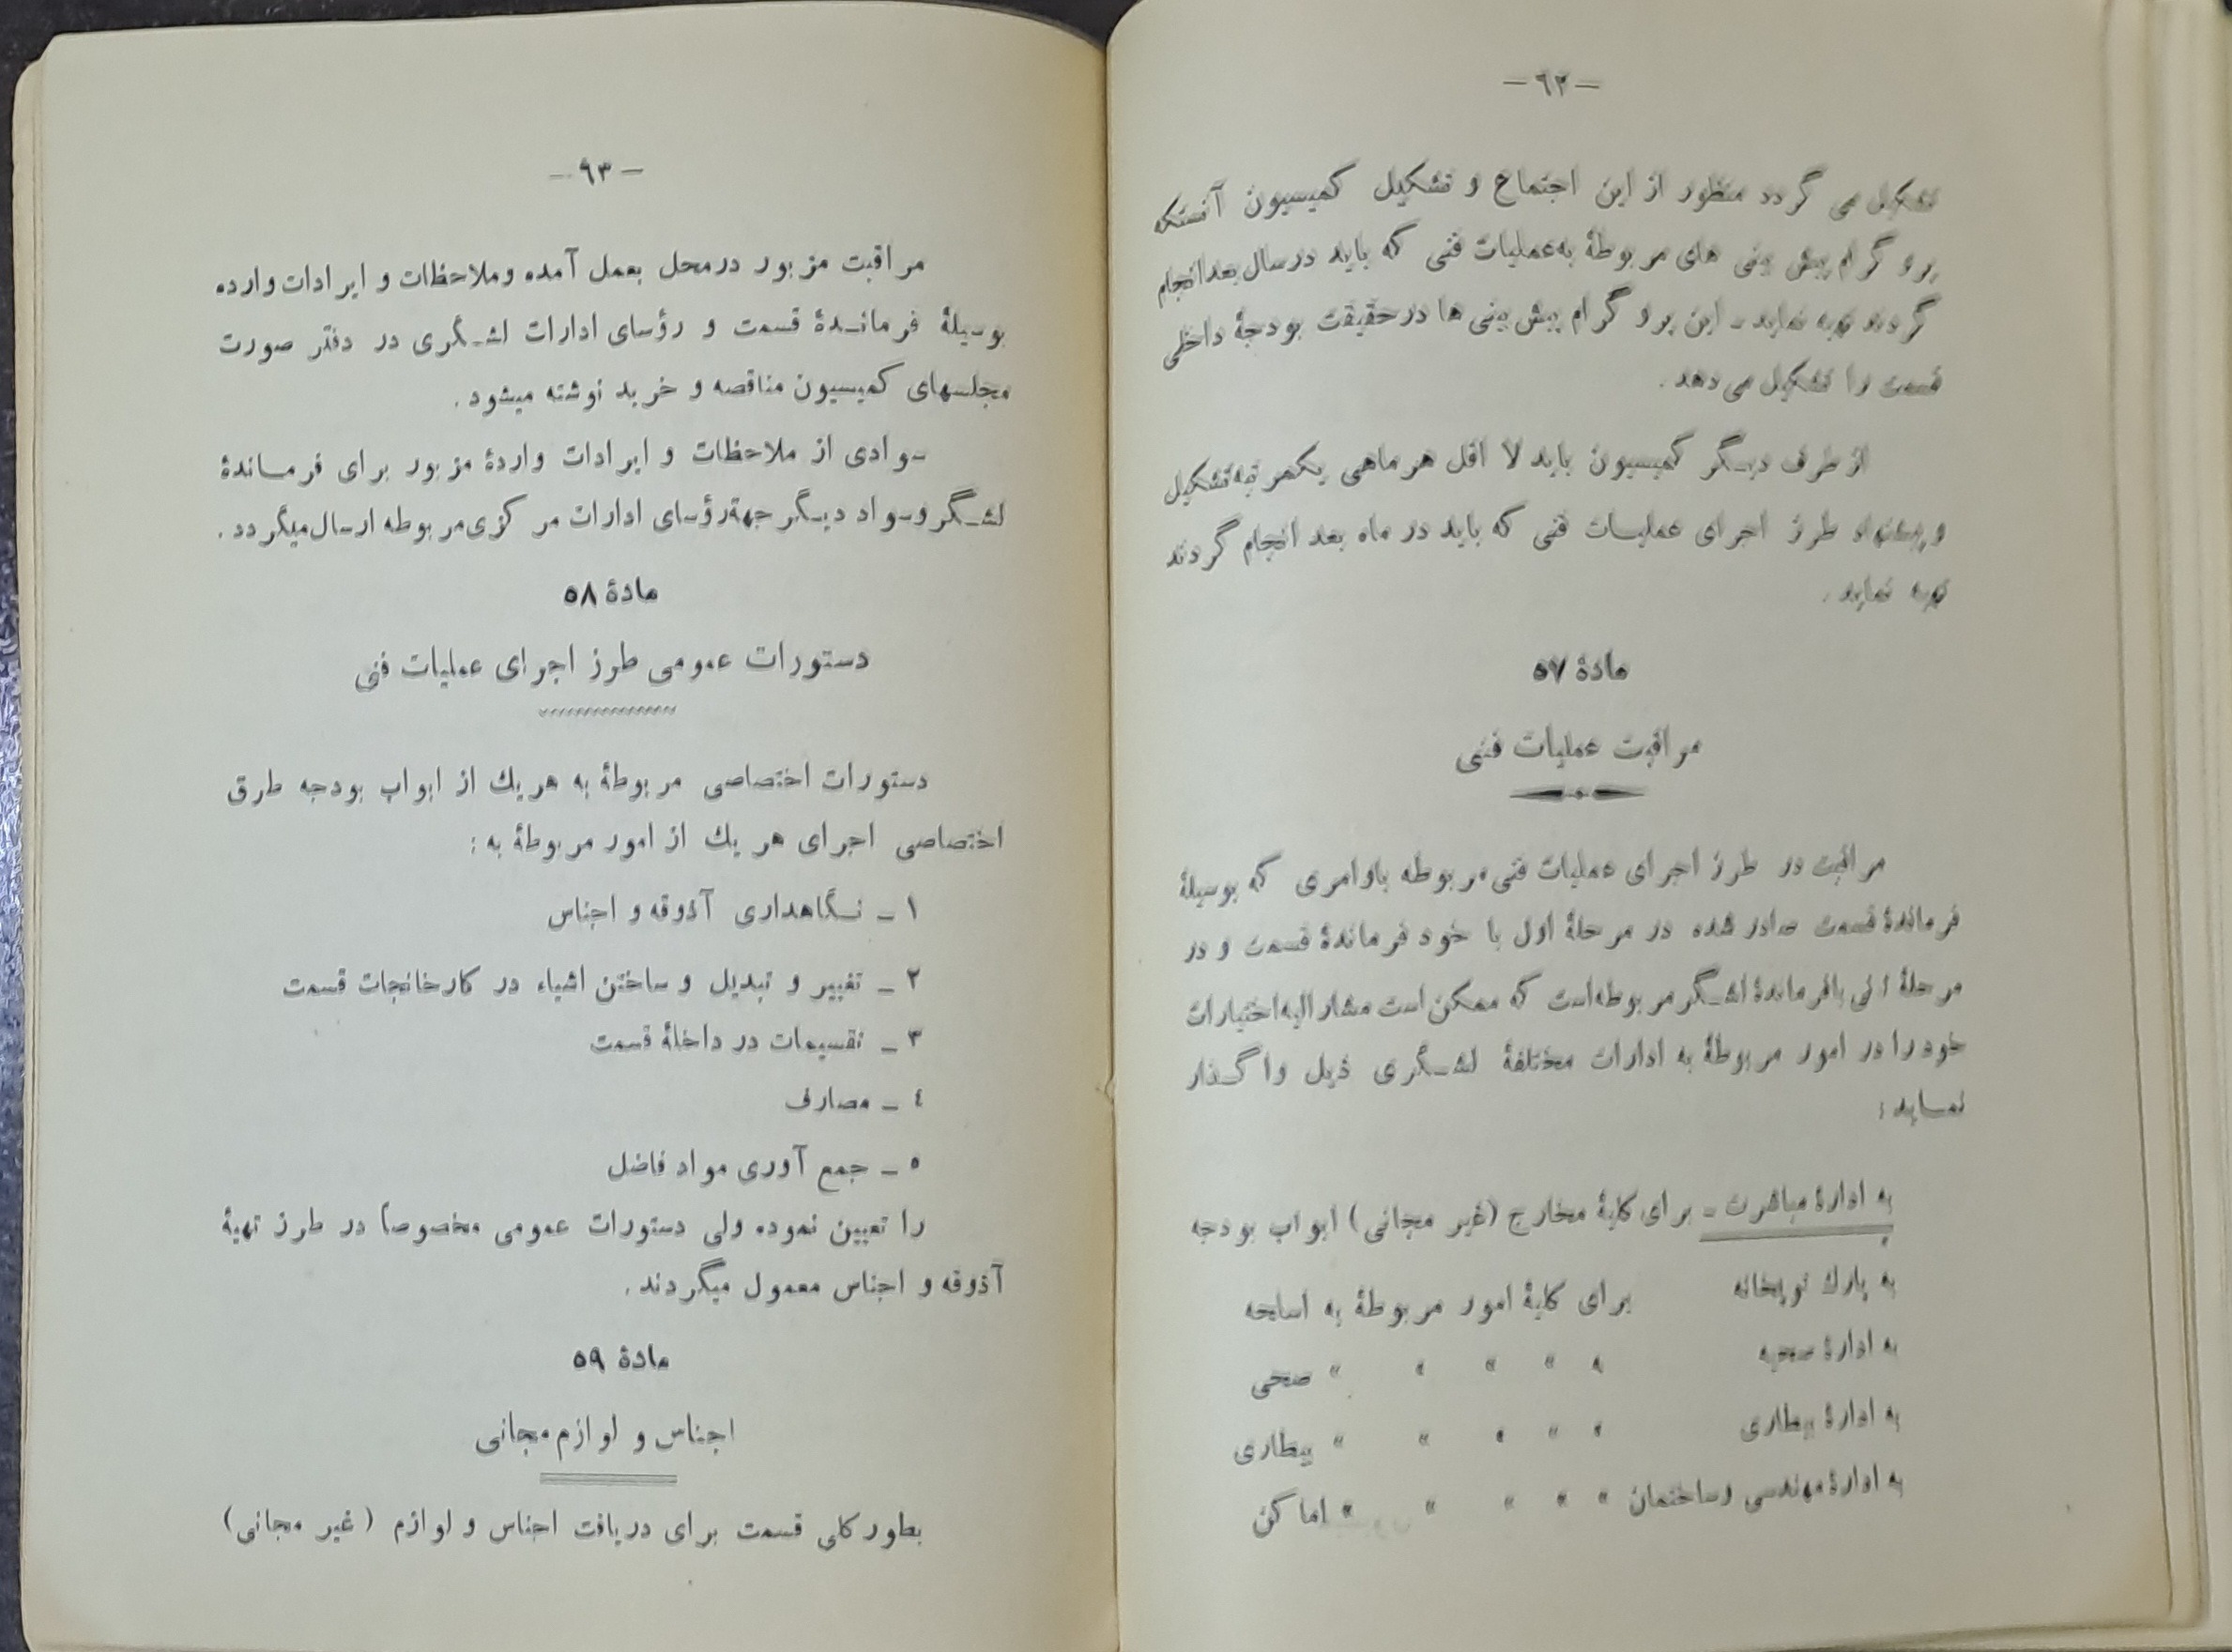 —٦٢—
تشکیل می گردد منظور از این اجتماع و تشکیل کمیسیون آنستکه
پرو گرام پیش بینی های مربوطهٔ به عملیات فنی که باید در سال بعد انجام
گردند تهیه نماید ـ این پرو گرام پیش بینی ها در حقیقت بودجهٔ داخلی
قسمت را تشکیل می دهد .
از طرف دیگر کمیسیون باید لا اقل هر ماهی یکمرتبه تشکیل
و پیشنهاد طرز اجرای عملیات فنی که باید در ماه بعد انجام گردند
تهیه نماید .
مادهٔ ٥٧
مراقبت عملیات فنی
مراقبت در طرز اجرای عملیات فنی مربوطه باوامری که بوسیلهٔ
فرماندهٔ قسمت صادر شده در مرحلهٔ اول با خود فرماندهٔ قسمت و در
مرحلهٔ ثانی بافرماندهٔ لشگر مربوطه است که ممکن است مشار الیه اختیارات
خود را در امور مربوطهٔ به ادارات مختلفهٔ لشگری ذیل واگذار
نماید :
به ادارهٔ مباشرت ـ برای کلیهٔ مخارج (غیر مجانی) ابواب بودجه
به پارك توپخانه برای کلیهٔ امور مربوطهٔ به اسلحه
به ادارهٔ صحیه » » » » » صحی
به ادارهٔ بیطاری » » » » » بیطاری
به ادارهٔ مهندسی و ساختمان » » » » » اماکن
—٦٣—
مراقبت مزبور در محل بعمل آمده و ملاحظات و ایرادات وارده
بوسیلهٔ فرماندهٔ قسمت و رؤسای ادارات لشگری در دفتر صورت
مجلسهای کمیسیون مناقصه و خرید نوشته میشود .
سوادی از ملاحظات و ایرادات واردهٔ مزبور برای فرماندهٔ
لشگر وسواد دیگر جهة رؤسای ادارات مرکزی مربوطه ارسال میگردد .
مادهٔ ٥٨
دستورات عمومی طرز اجرای عملیات فنی
دستورات اختصاصی مربوطهٔ به هر یك از ابواب بودجه طرق
اختصاصی اجرای هر یك از امور مربوطهٔ به :
١ ـ نگاهداری آذوقه و اجناس
٢ ـ تغییر و تبدیل و ساختن اشیاء در کارخانجات قسمت
٣ ـ تقسیمات در داخلهٔ قسمت
٤ ـ مصارف
٥ ـ جمع آوری مواد فاضل
را تعیین نموده ولی دستورات عمومی مخصوصاً در طرز تهیهٔ
آذوقه و اجناس معمول میگردند .
مادهٔ ٥٩
اجناس و لوازم مجانی
بطور کلی قسمت برای دریافت اجناس و لوازم (غیر مجانی)